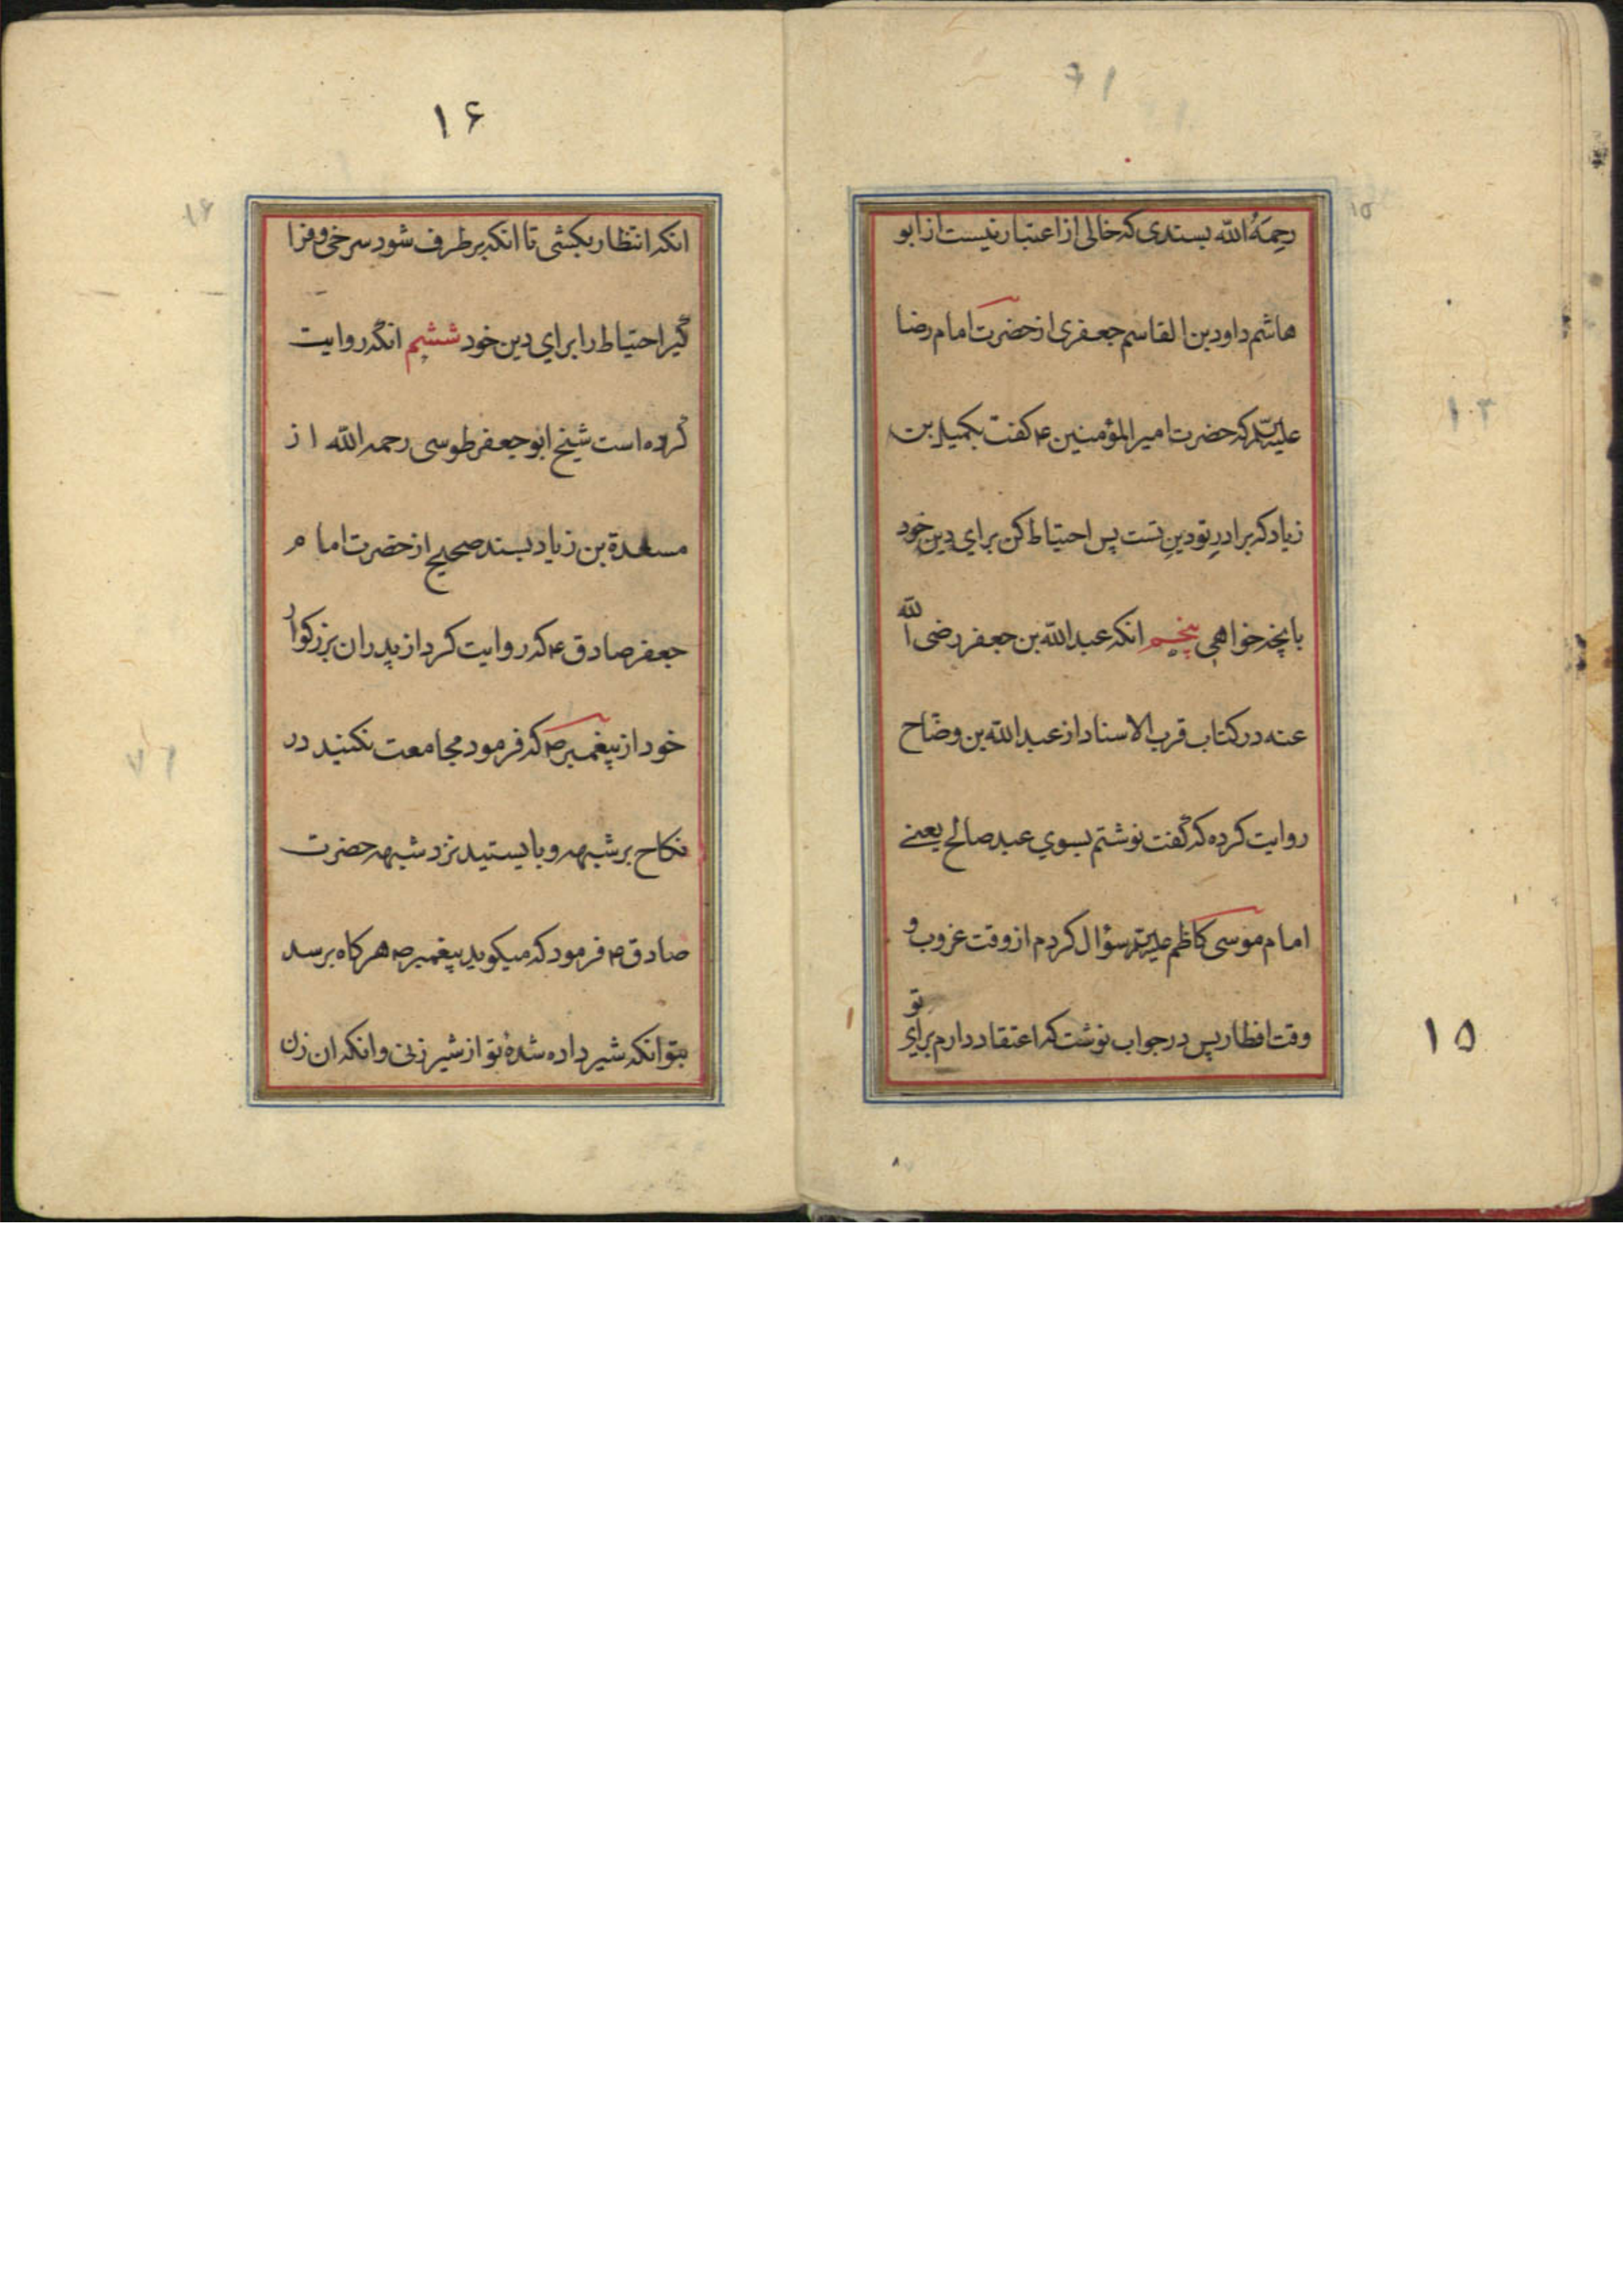 رحمَهُ الله بسندی که خالی از اعتبار نیست از ابو
هاشم داود بن القاسم جعفری از حضرت امام رضا
علیه السلم که حضرت امیر المؤمنین ۴ کفت بکمیل بن
زیاد که برادرِ تو دینِ تست پس احتیاط کن برای دینِ خود
بانچه خواهی پنجم انکه عبد الله بن جعفر رضی الله
عنه در کتاب قرب الاسناد از عبد الله بن وضّاح
روایت کرده که گفت نوشتم بسوی عبد صالح یعنے
امام موسی کاظم علیه السلم سؤال کردم از وقت غروب و
وقت افطار پس در جواب نوشت که اعتقاد دارم برای تو
۱۵
۱۶
انکه انتظار بکشی تا انکه بر طرف شود سرخی و فرا
گیر احتیاط را برای دین خود ششم انکه روایت
کرده است شیخ ابو جعفر طوسی رحمه الله از
مسعدة بن زیاد بسند صحیح از حضرت امام
جعفر صادق ۴ که روایت کرد از پدران بزرکوار
خود از پیغمبر ص که فرمود مجامعت نکنید در
نکاح بر شبهه و بایستید نزد شبهه حضرت
صادق ۴ فرمود که میکوید پیغمبر ص هر کاه برسد
بتو انکه شیر داده شدهٔ تو از شیر زنی و انکه ان زن